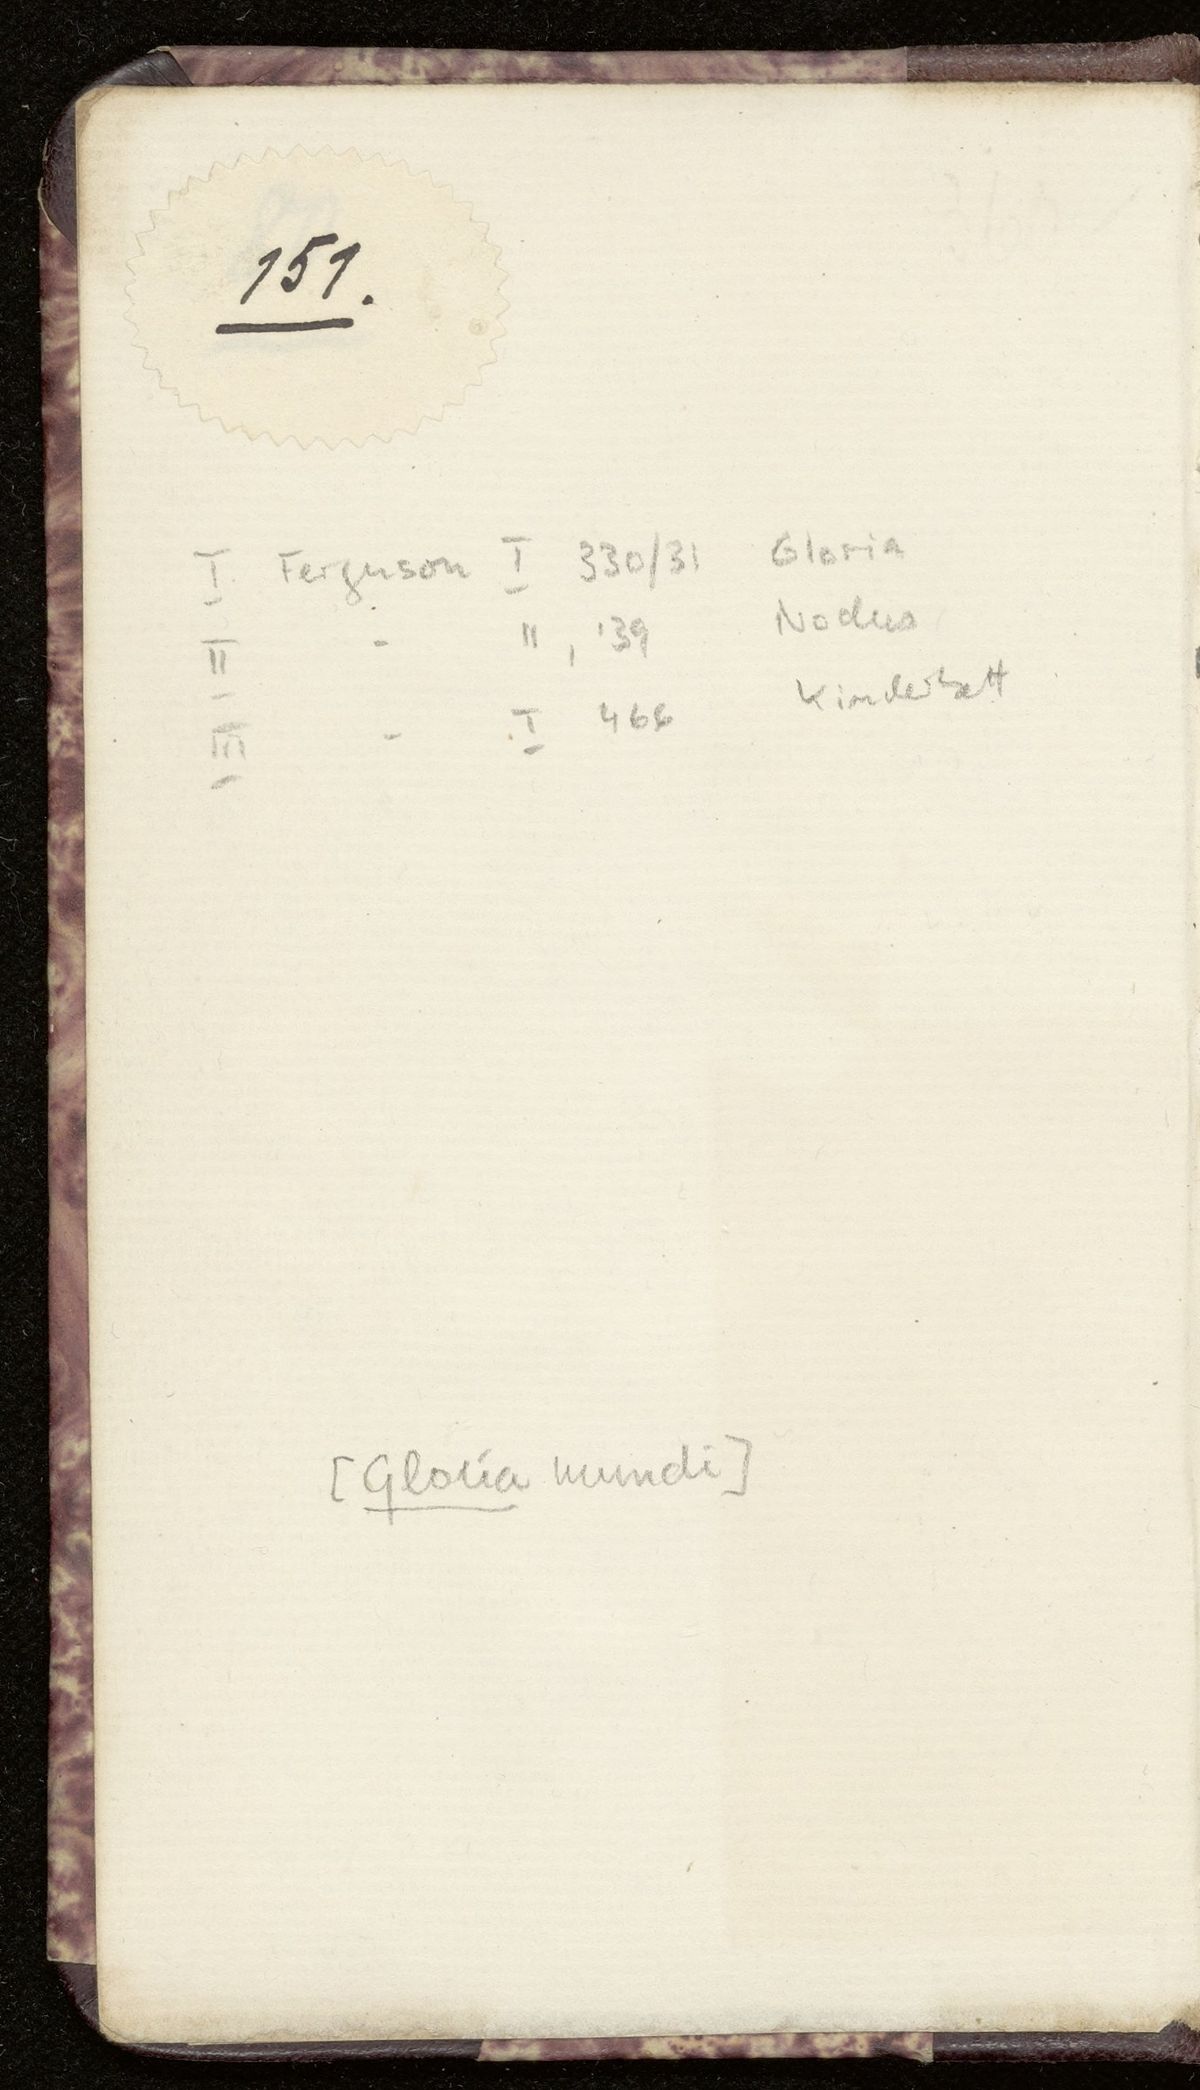 151.
I Ferguson I 330/31 Gloria
II - II, 139 Nodus
III - I 466 Kinderbett
[Gloria mundi]